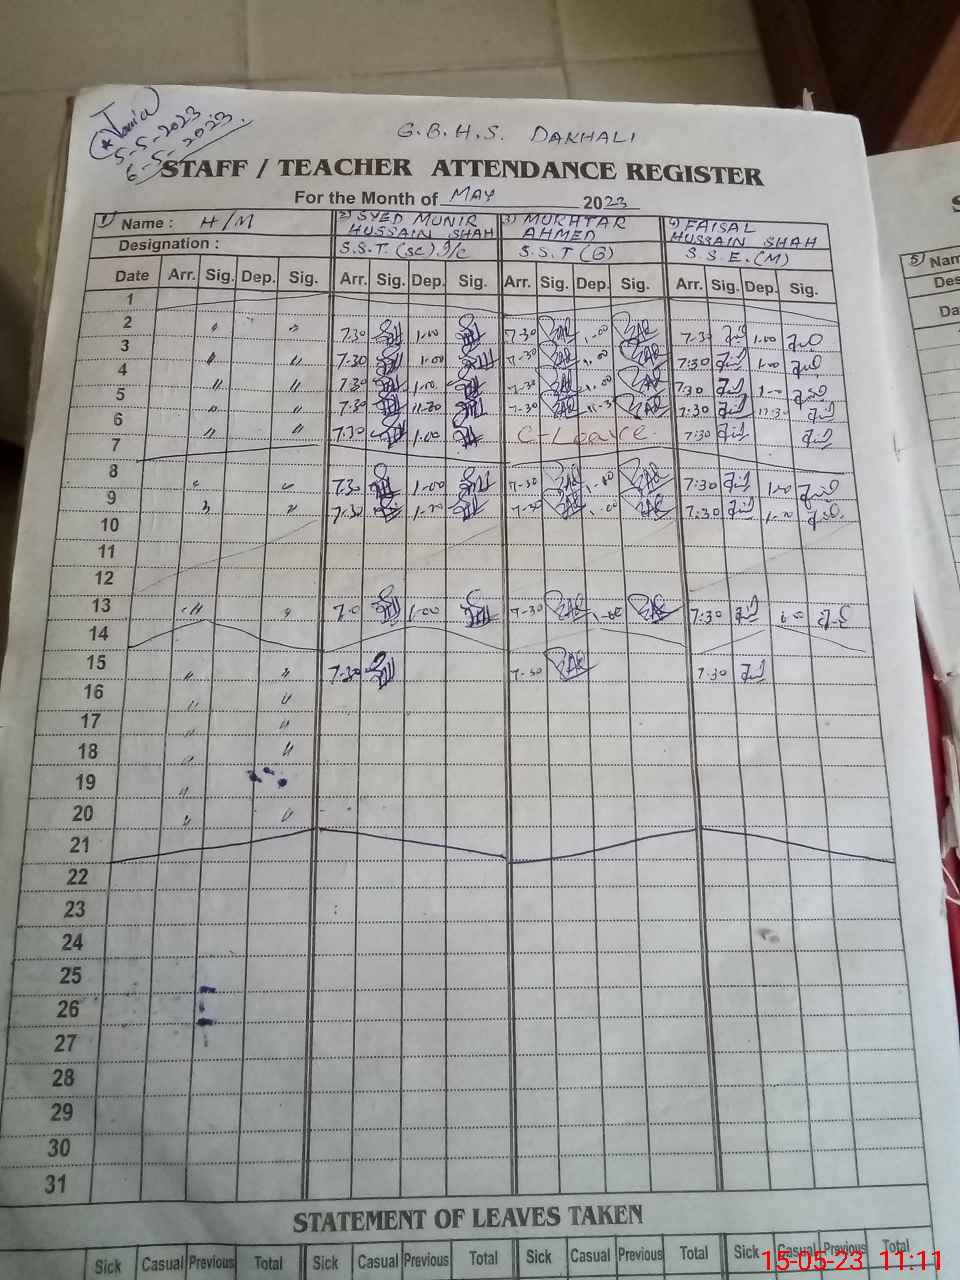 5-5-2023
6-5-2023.
G.B.H.S. DAKHALI
STAFF / TEACHER ATTENDANCE REGISTER
For the Month of MAY 2023
1) Name : H/M 2) SYED MUNIR HUSSAIN SHAH 3) MUKHTAR AHMED 4) FAISAL HUSSAIN SHAH 5) Nam
Designation : S.S.T. (SC) I/C S.S.T (G) S.S.E. (M) Des
Date Arr. Sig. Dep. Sig. Arr. Sig. Dep. Sig. Arr. Sig. Dep. Sig. Arr. Sig. Dep. Sig. Da
1
2 " " 7.30 1-00 7-30 1-00 7-30 1.00
3 " " 7-30 1-00 7-30 1.00 7:30 1-00
4 " " 7.30 1-00 7-30 1.00 7:30 1-00
5 " " 7.30 11-30 7-30 11-3 7:30 11:30
6 " " 7.30 1-00 C-Leave 7:30
7
8 " " 7.30 1-00 7-30 1-00 7:30 1-00
9 " " 7.30 1-00 7-30 1-00 7:30 1-00
10
11
12
13 " " 1-00 7-30 1-00 7:30
14
15 " " 7-30 7-30 7-30
16 " "
17 " "
18 " "
19 "
20 " "
21
22
23
24
25
26
27
28
29
30
31
STATEMENT OF LEAVES TAKEN
Sick Casual Previous Total Sick Casual Previous Total Sick Casual Previous Total Sick Casual Previous Total
15-05-23 11:11